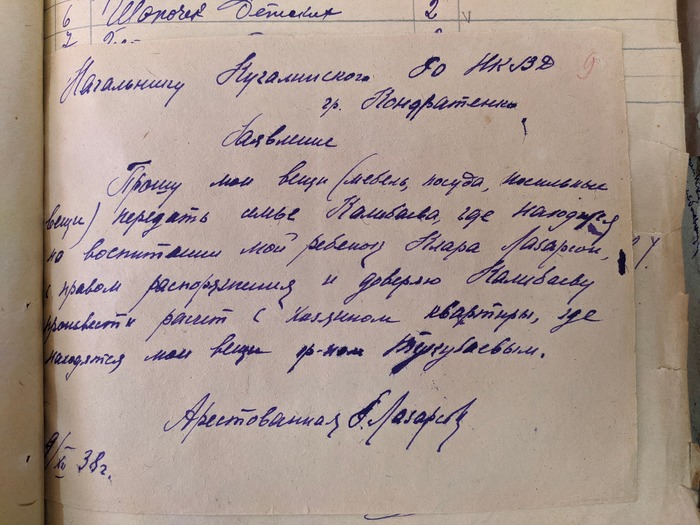 6 Шапочек Детских 2 v
7
9
Начальнику Кугалинского Ро НКВД
гр. Кондратенко
Заявление
Прошу мои вещи (мебель, посуда, носильные
вещи) передать семье Калибаева, где находится
на воспитании мой ребенок Клара Лазарсон,
с правом распоряжения и доверяю Калибаеву
произвести расчет с хозяином квартиры, где
находятся мои вещи гр-ном
Арестованная
9/XI 38 г.